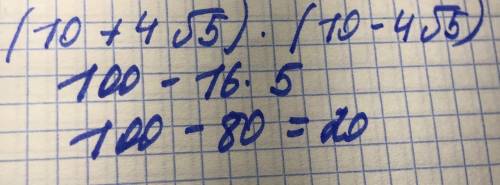 (10 + 4√5) · (10 - 4√5)
100 - 16 · 5
100 - 80 = 20